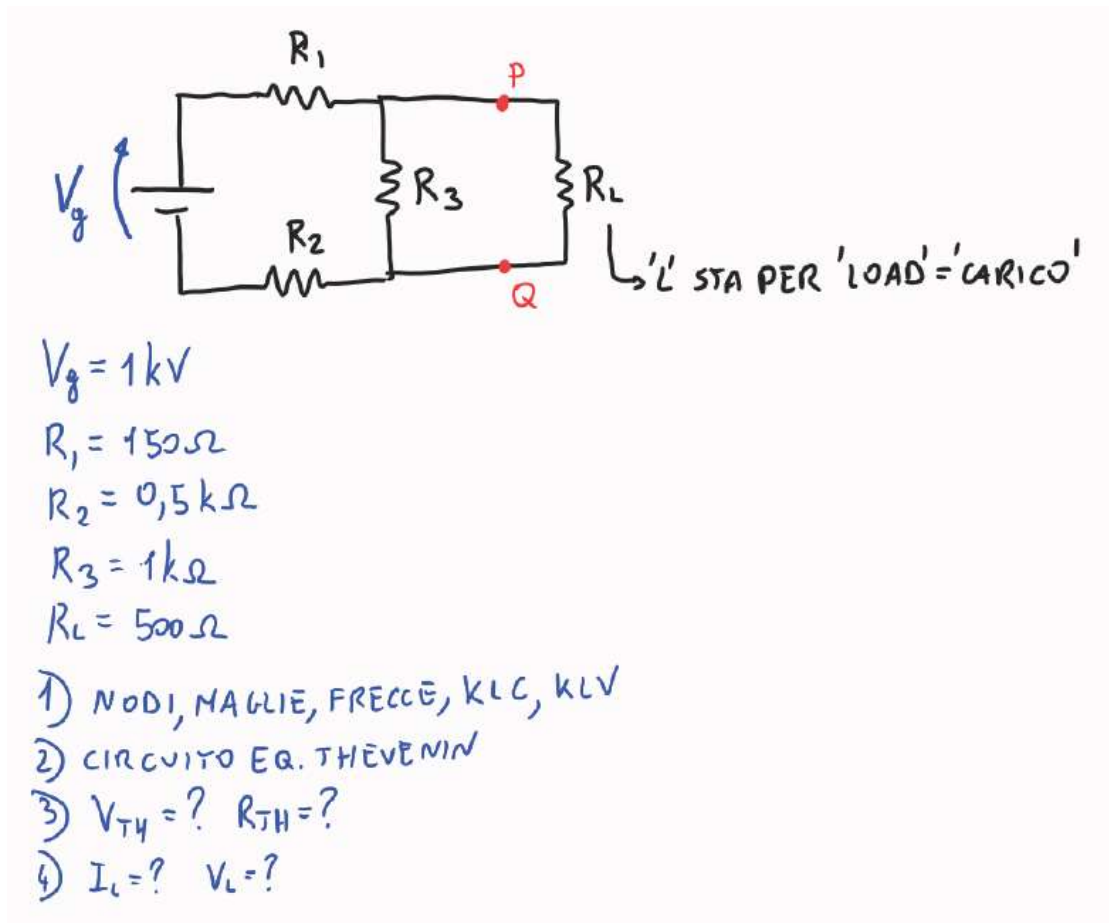 R1
P
Vg
R3
RL
R2
Q
'L' STA PER 'LOAD'='CARICO'
Vg = 1kV
R1 = 150Ω
R2 = 0,5kΩ
R3 = 1kΩ
RL = 500Ω
1) NODI, MAGLIE, FRECCE, KLC, KLV
2) CIRCUITO EQ. THEVENIN
3) VTH =? RTH=?
4) IL=? VL=?